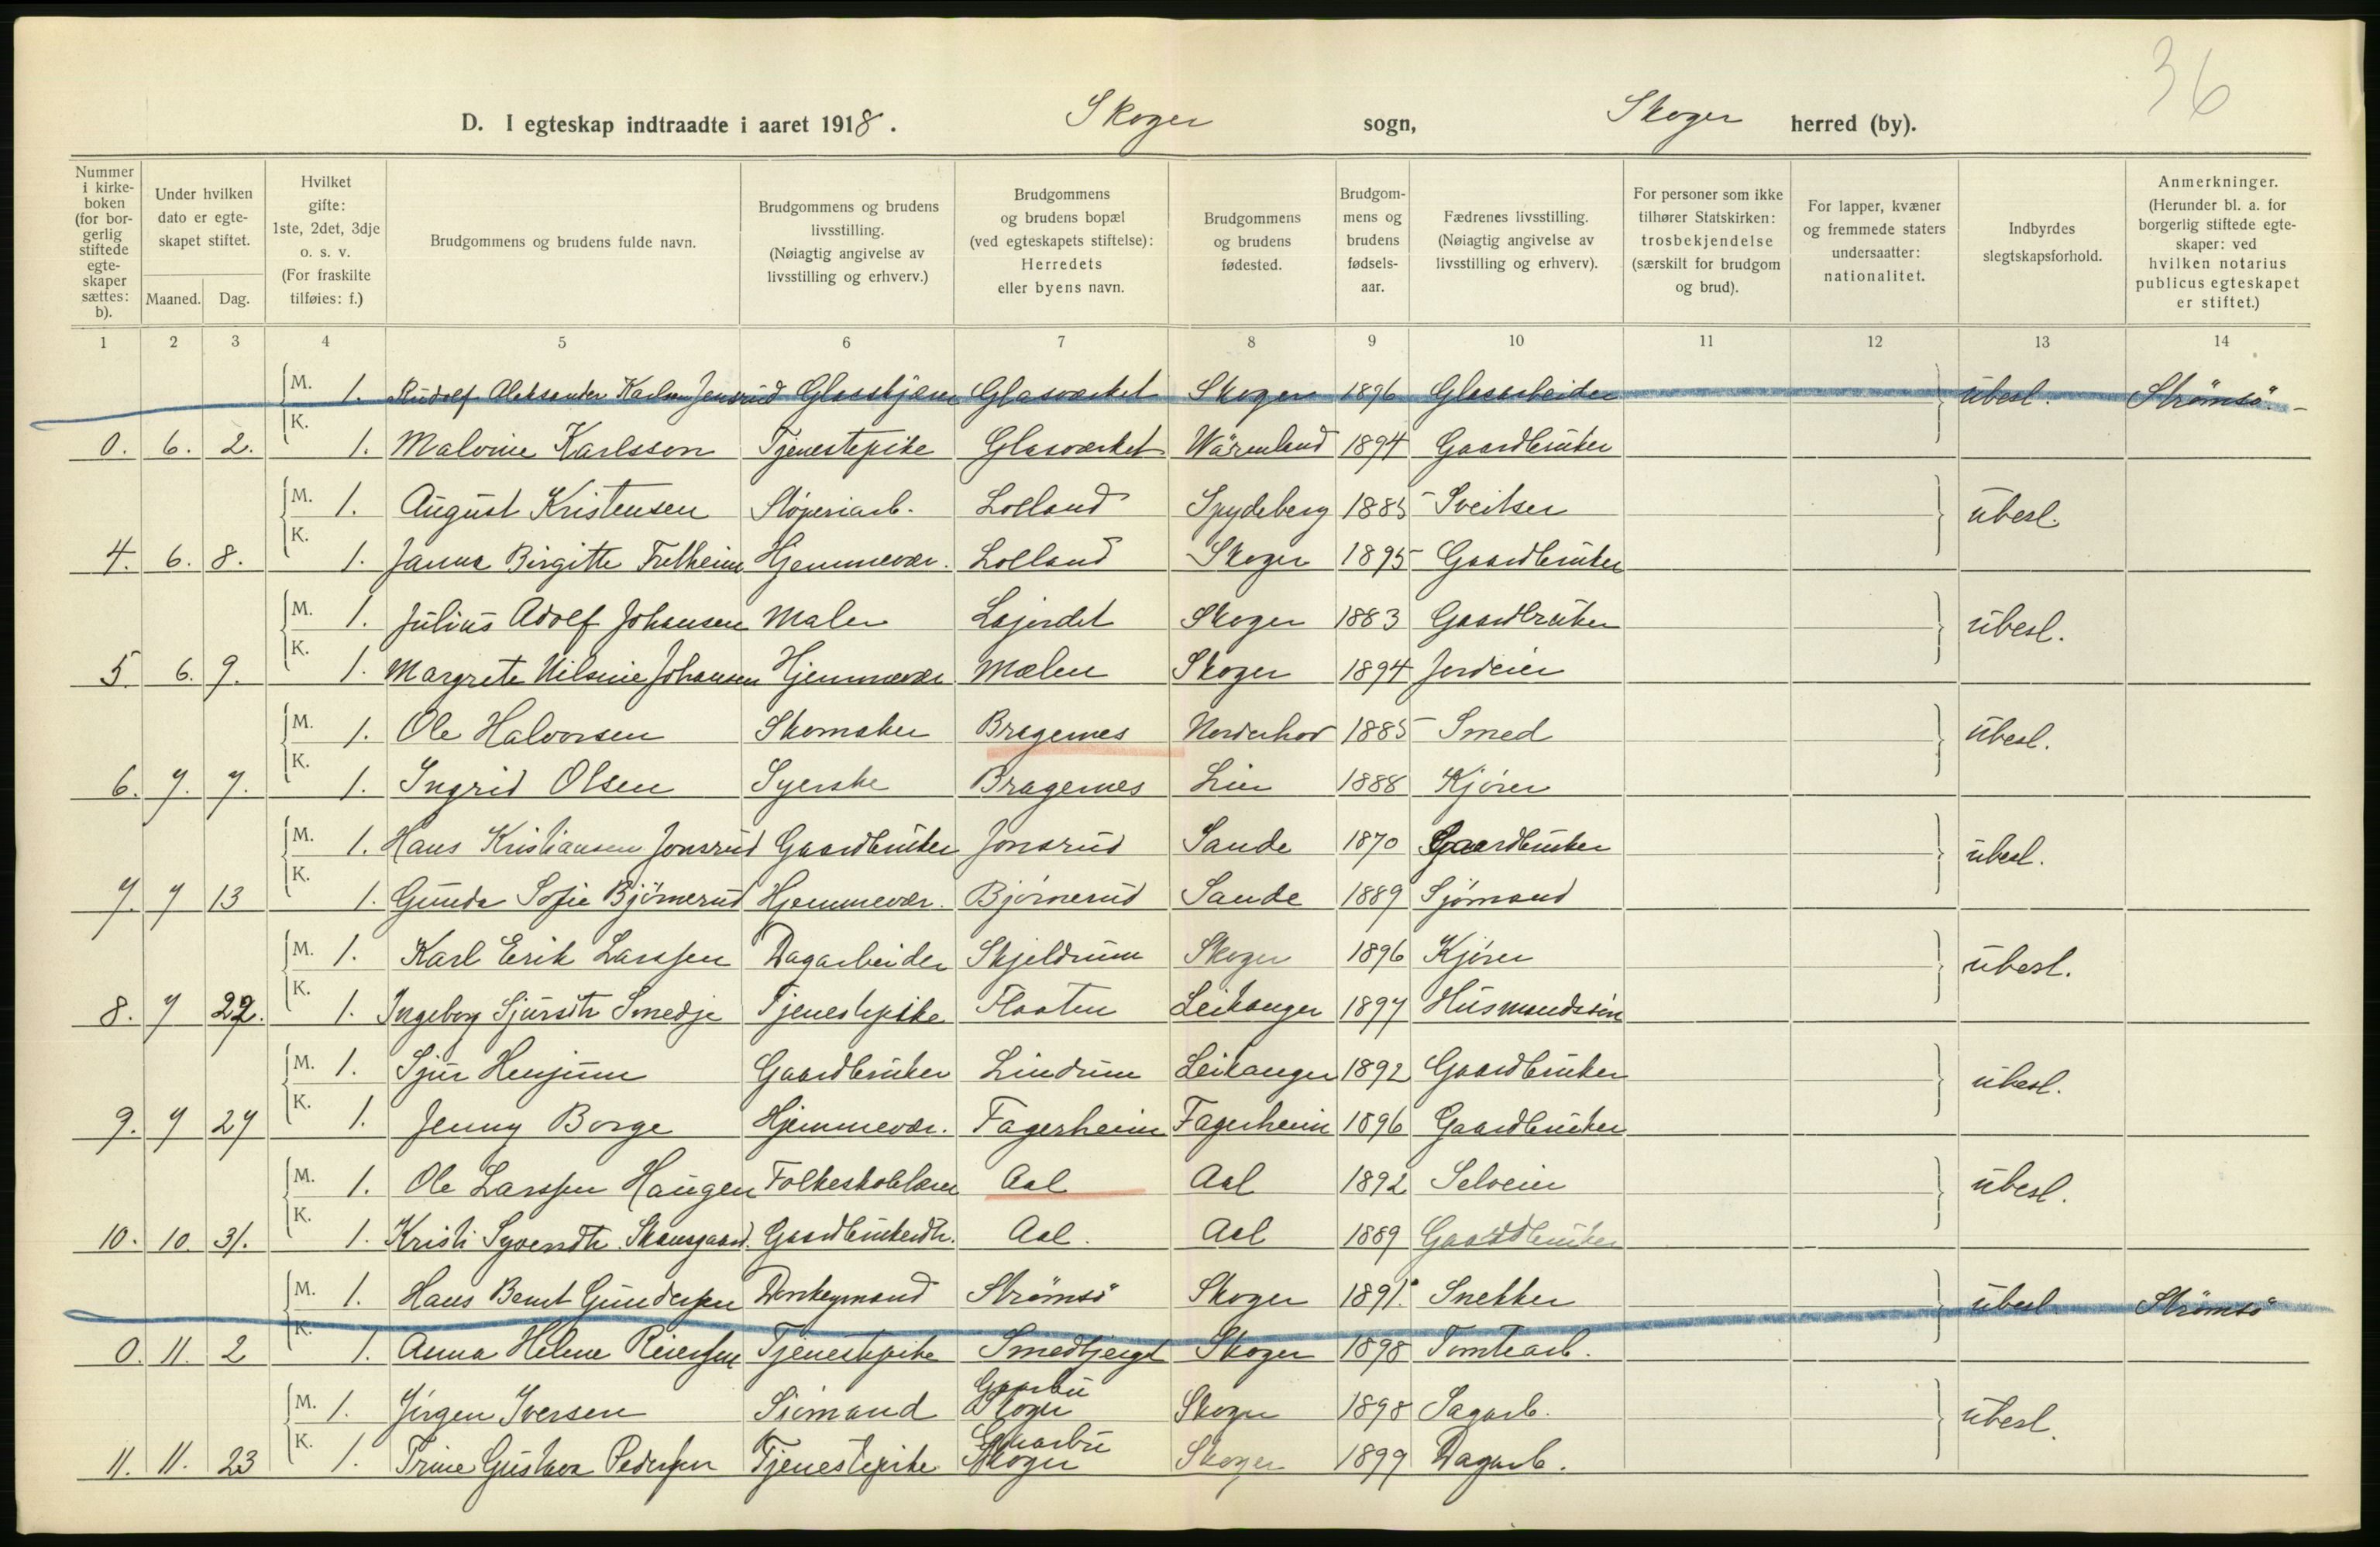 36
D. I egteskap indtraadte i aaret 1918. Skoger sogn, Skoger herred (by).
Nummer i kirke-boken (for bor-gerlig stiftede egte-skaper sættes: b).
Under hvilken dato er egte-skapet stiftet.
Maaned. Dag.
Hvilket gifte: 1ste, 2det, 3dje o. s. v. (For fraskilte tilføies: f.)
Brudgommens og brudens fulde navn.
Brudgommens og brudens livsstilling. (Nøiagtig angivelse av livsstilling og erhverv.)
Brudgommens og brudens bopæl (ved egteskapets stiftelse): Herredets eller byens navn.
Brudgommens og brudens fødested.
Brudgom-mens og brudens fødsels-aar.
Fædrenes livsstilling. (Nøiagtig angivelse av livsstilling og erhverv).
For personer som ikke tilhører Statskirken: trosbekjendelse (særskilt for brudgom og brud).
For lapper, kvæner og fremmede staters undersaatter: nationalitet.
Indbyrdes slegtskapsforhold.
Anmerkninger. (Herunder bl. a. for borgerlig stiftede egte-skaper: ved hvilken notarius publicus egteskapet er stiftet.)
1 2 3 4 5 6 7 8 9 10 11 12 13 14
M. 1. Rudolf Aleksander Karlsen Jensrud Glasskjærer Glasværket Skoger 1896 Glasarbeider ubesl. Strømsö.
0. 6. 2. K. 1. Malvine Karlsson Tjenestepike Glasværket Wärmland 1894 Gaardbruker
M. 1. August Kristensen Støperiarb. Lolland Spydeberg 1885 Sveitser ubesl.
4. 6. 8. K. 1. Janna Birgitte Fretheim Hjemmevær. Lolland Skoger 1895 Gaardbruker
M. 1. Julius Adolf Johansen Maler Løjerdet Skoger 1883 Gaardbruker ubesl.
5. 6. 9. K. 1. Margrete Nilsine Johansen Hjemmevær Mælen Skoger 1894 Jordeier
M. 1. Ole Halvorsen Skomaker Bragernes Norderhov 1885 Smed ubesl.
6. 7. 7. K. 1. Ingrid Olsen Syerske Bragernes Lier 1888 Kjører
M. 1. Hans Kristiansen Jonsrud Gaardbruker Jonsrud Sande 1870 Gaardbruker ubesl.
7. 7 13 K. 1. Gunda Sofie Bjørnerud Hjemmevær. Bjørnerud Sande 1889 Sjømand
M. 1. Karl Erik Larssen Dagarbeider Skjeldrum Skoger 1896 Kjører ubesl.
8. 7 22. K. 1. Ingeborg Sjursdtr Smedje Tjenestepike Flaaten Leikanger 1897 Husmandssön
M. 1. Sjur Henjum Gaardbruker Lindrum Leikanger 1892 Gaardbruker ubesl.
9. 7 27 K. 1. Jenny Borge Hjemmevær. Fagerheim Fagerheim 1896 Gaardbruker
M. 1. Ole Larssen Haugen Folkeskolelærer Aal Aal 1892 Selveier ubesl.
10. 10. 31. K. 1. Kristi Syvendtr. Skansgaard. Gaardbrukerdtr. Aal. Aal 1889 Gaardbruker
M. 1. Hans Bernt Gundersen Donkeymand Strømsö Skoger 1891. Snekker ubesl Strømsö
0. 11. 2 K. 1. Anna Helene Reiersen Tjenestepike Smedbjerget Skoger 1898 Tomtearb.
M. 1. Jørgen Iversen Siømand Skoger Skoger 1898 Sagarb. ubesl.
11. 11. 23 K. 1. Trine Gustava Pedersen Tjenestepike Skoger Skoger 1899 Dagarb.